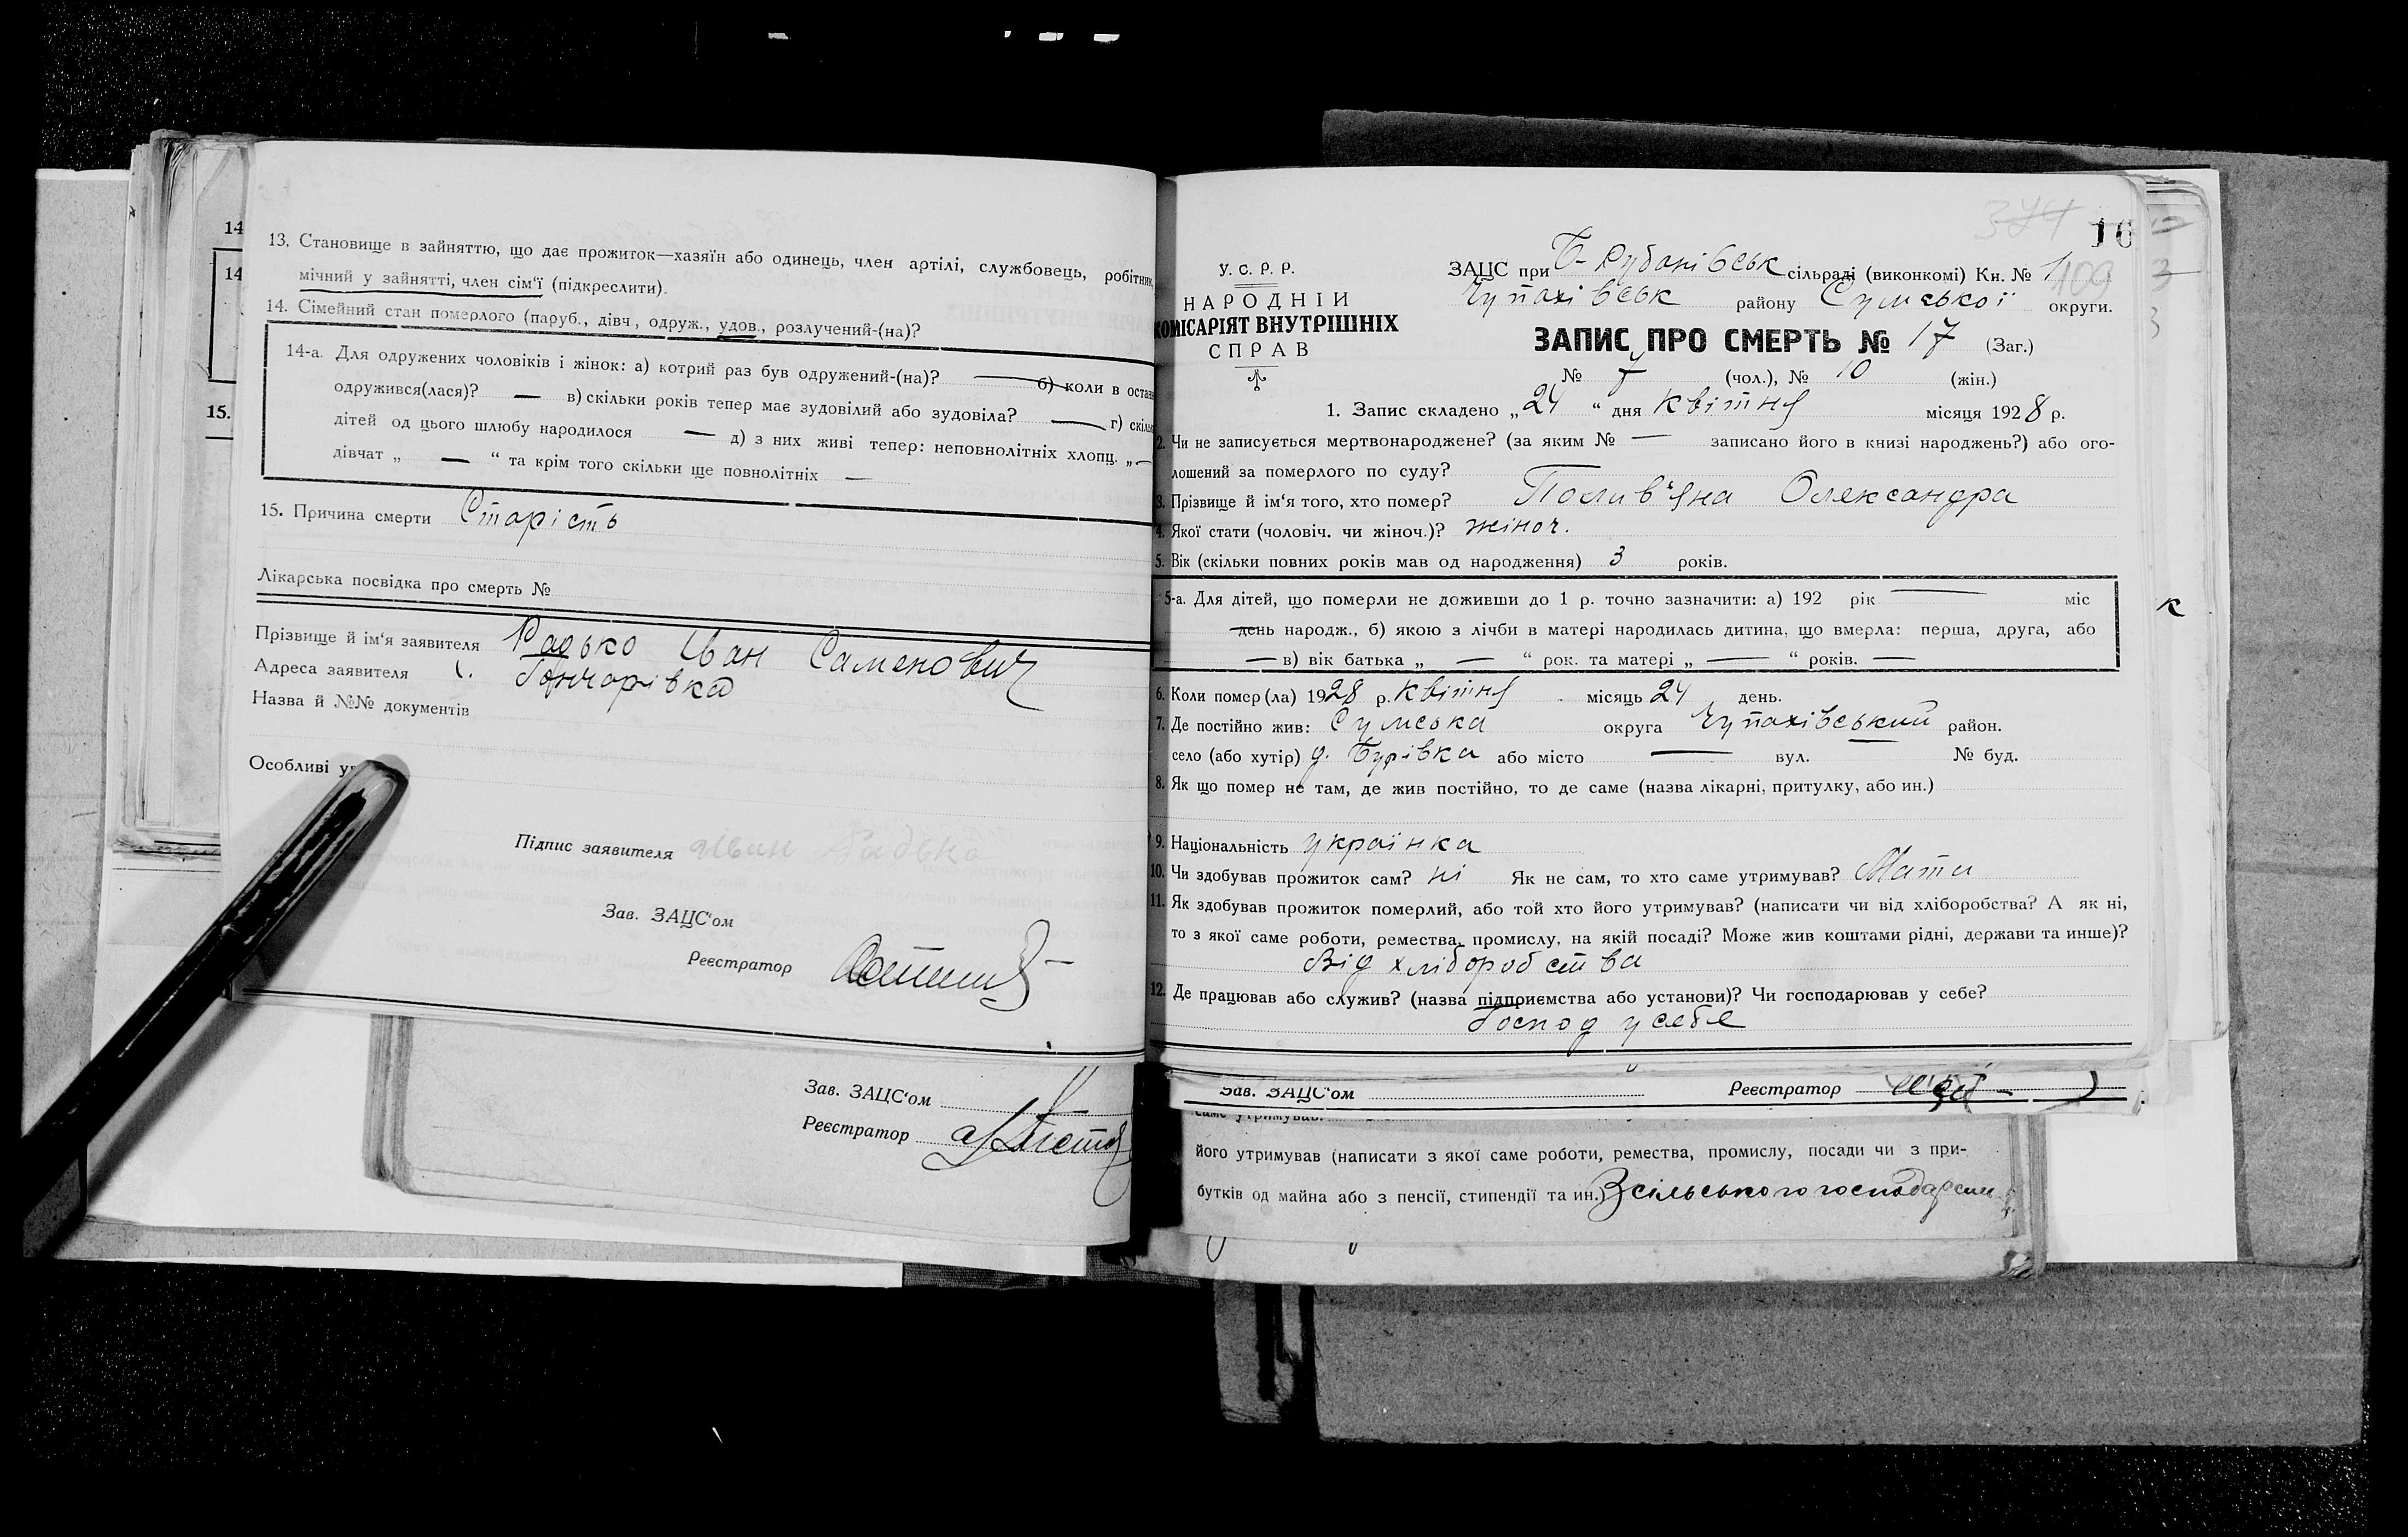 14
14
15.
13. Становище в зайняттю, що дає прожиток—хазяїн або одинець, член артілі, службовець, робітник,
мічний у зайнятті, член сім'ї (підкреслити).
14. Сімейний стан померлого (паруб., дівч, одруж., удов., розлучений-(на)?
14-а. Для одружених чоловіків і жінок: а) котрий раз був одружений-(на)? — б) коли в остан
одружився(лася)? — в) скільки років тепер має зудовілий або зудовіла? — г) скіль
дітей од цього шлюбу народилося — д) з них живі тепер: неповнолітніх хлопц. „—
дівчат „ — “ та крім того скільки ще повнолітніх —
15. Причина смерти Старість
Лікарська посвідка про смерть №
Прізвище й ім'я заявителя Радько Іван Семенович
Адреса заявителя Гончарівка
Назва й №№ документів
Особливі
Підпис заявителя Іван Радько
Зав. ЗАЦС'ом
Реєстратор
Зав. ЗАЦС'ом
Реєстратор
374
16
109
У. С. Р. Р.
НАРОДНІЙ
КОМІСАРІЯТ ВНУТРІШНІХ
СПРАВ
ЗАЦС при Б-Рубанівськ сільраді (виконкомі) Кн. № 1
Чупахівськ району Сумської округи.
ЗАПИС ПРО СМЕРТЬ № 17 (Заг.)
№ 7 (чол.), № 10 (жін.)
1. Запис складено „24 “ дня квітня місяця 1928 р.
2. Чи не записується мертвонароджене? (за яким № — записано його в книзі народжень?) або ого-
лошений за померлого по суду?
3. Прізвище й ім'я того, хто помер? Полив'яна Олександра
4. Якої стати (чоловіч. чи жіноч.)? жіноч.
5. Вік (скільки повних років мав од народження) 3 років.
5-а. Для дітей, що померли не доживши до 1 р. точно зазначити: а) 192 рік — міс
день народж., б) якою з лічби в матері народилась дитина, що вмерла: перша, друга, або
— в) вік батька „ — “ рок. та матері „ — “ років. —
6. Коли помер(ла) 1928 р. квітня місяць 24 день.
7. Де постійно жив: Сумська округа Чупахівський район.
село (або хутір) д. Бурівка або місто — вул. № буд.
8. Як що помер не там, де жив постійно, то де саме (назва лікарні, притулку, або ин.)
9. Національність українка
10. Чи здобував прожиток сам? ні Як не сам, то хто саме утримував? Мати
11. Як здобував прожиток померлий, або той хто його утримував? (написати чи від хліборобства? А як ні,
то з якої саме роботи, ремества, промислу, на якій посаді? Може жив коштами рідні, держави та инше)?
Від хліборобства
12. Де працював або служив? (назва підприємства або установи)? Чи господарював у себе?
Господ у себе
Зав. ЗАЦС'ом Реєстратор
саме утримував.
його утримував (написати з якої саме роботи, ремества, промислу, посади чи з при-
бутків од майна або з пенсії, стипендії та ин.) З сільського господарства